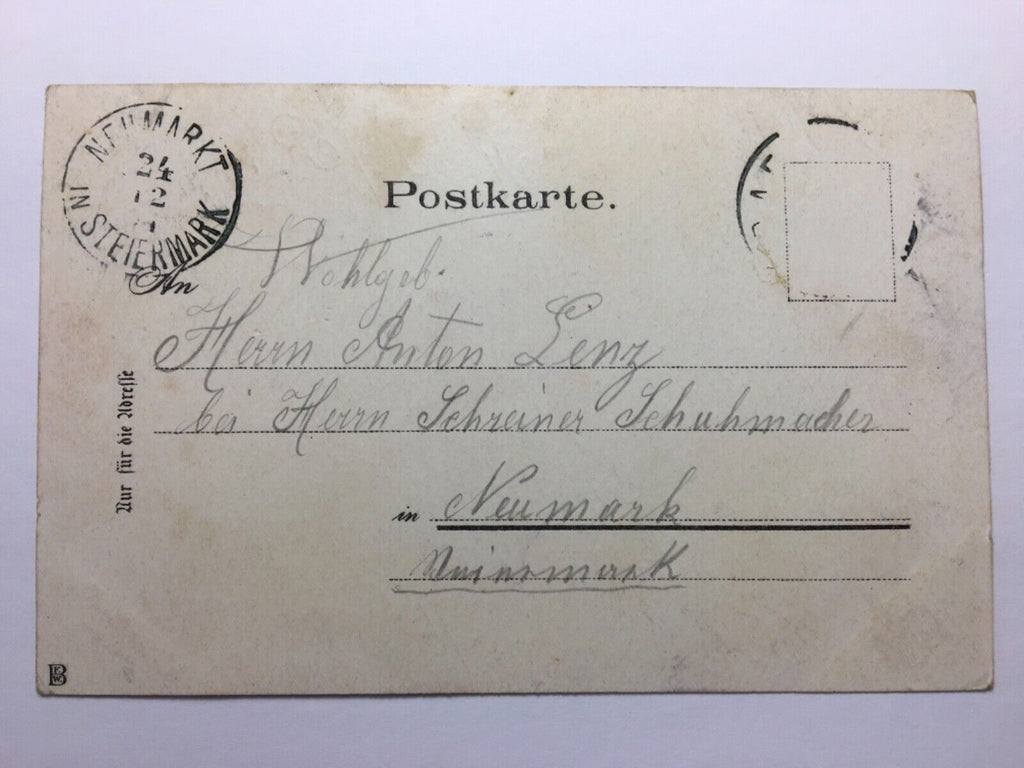 NEUMARKT
24
12
IN STEIERMARK
Postkarte.
An
Wohlgeb.
Herrn Anton Lenz
bei Herrn Schreiner Schuhmacher
in Neumark
Steiermark
Nur für die Adresse